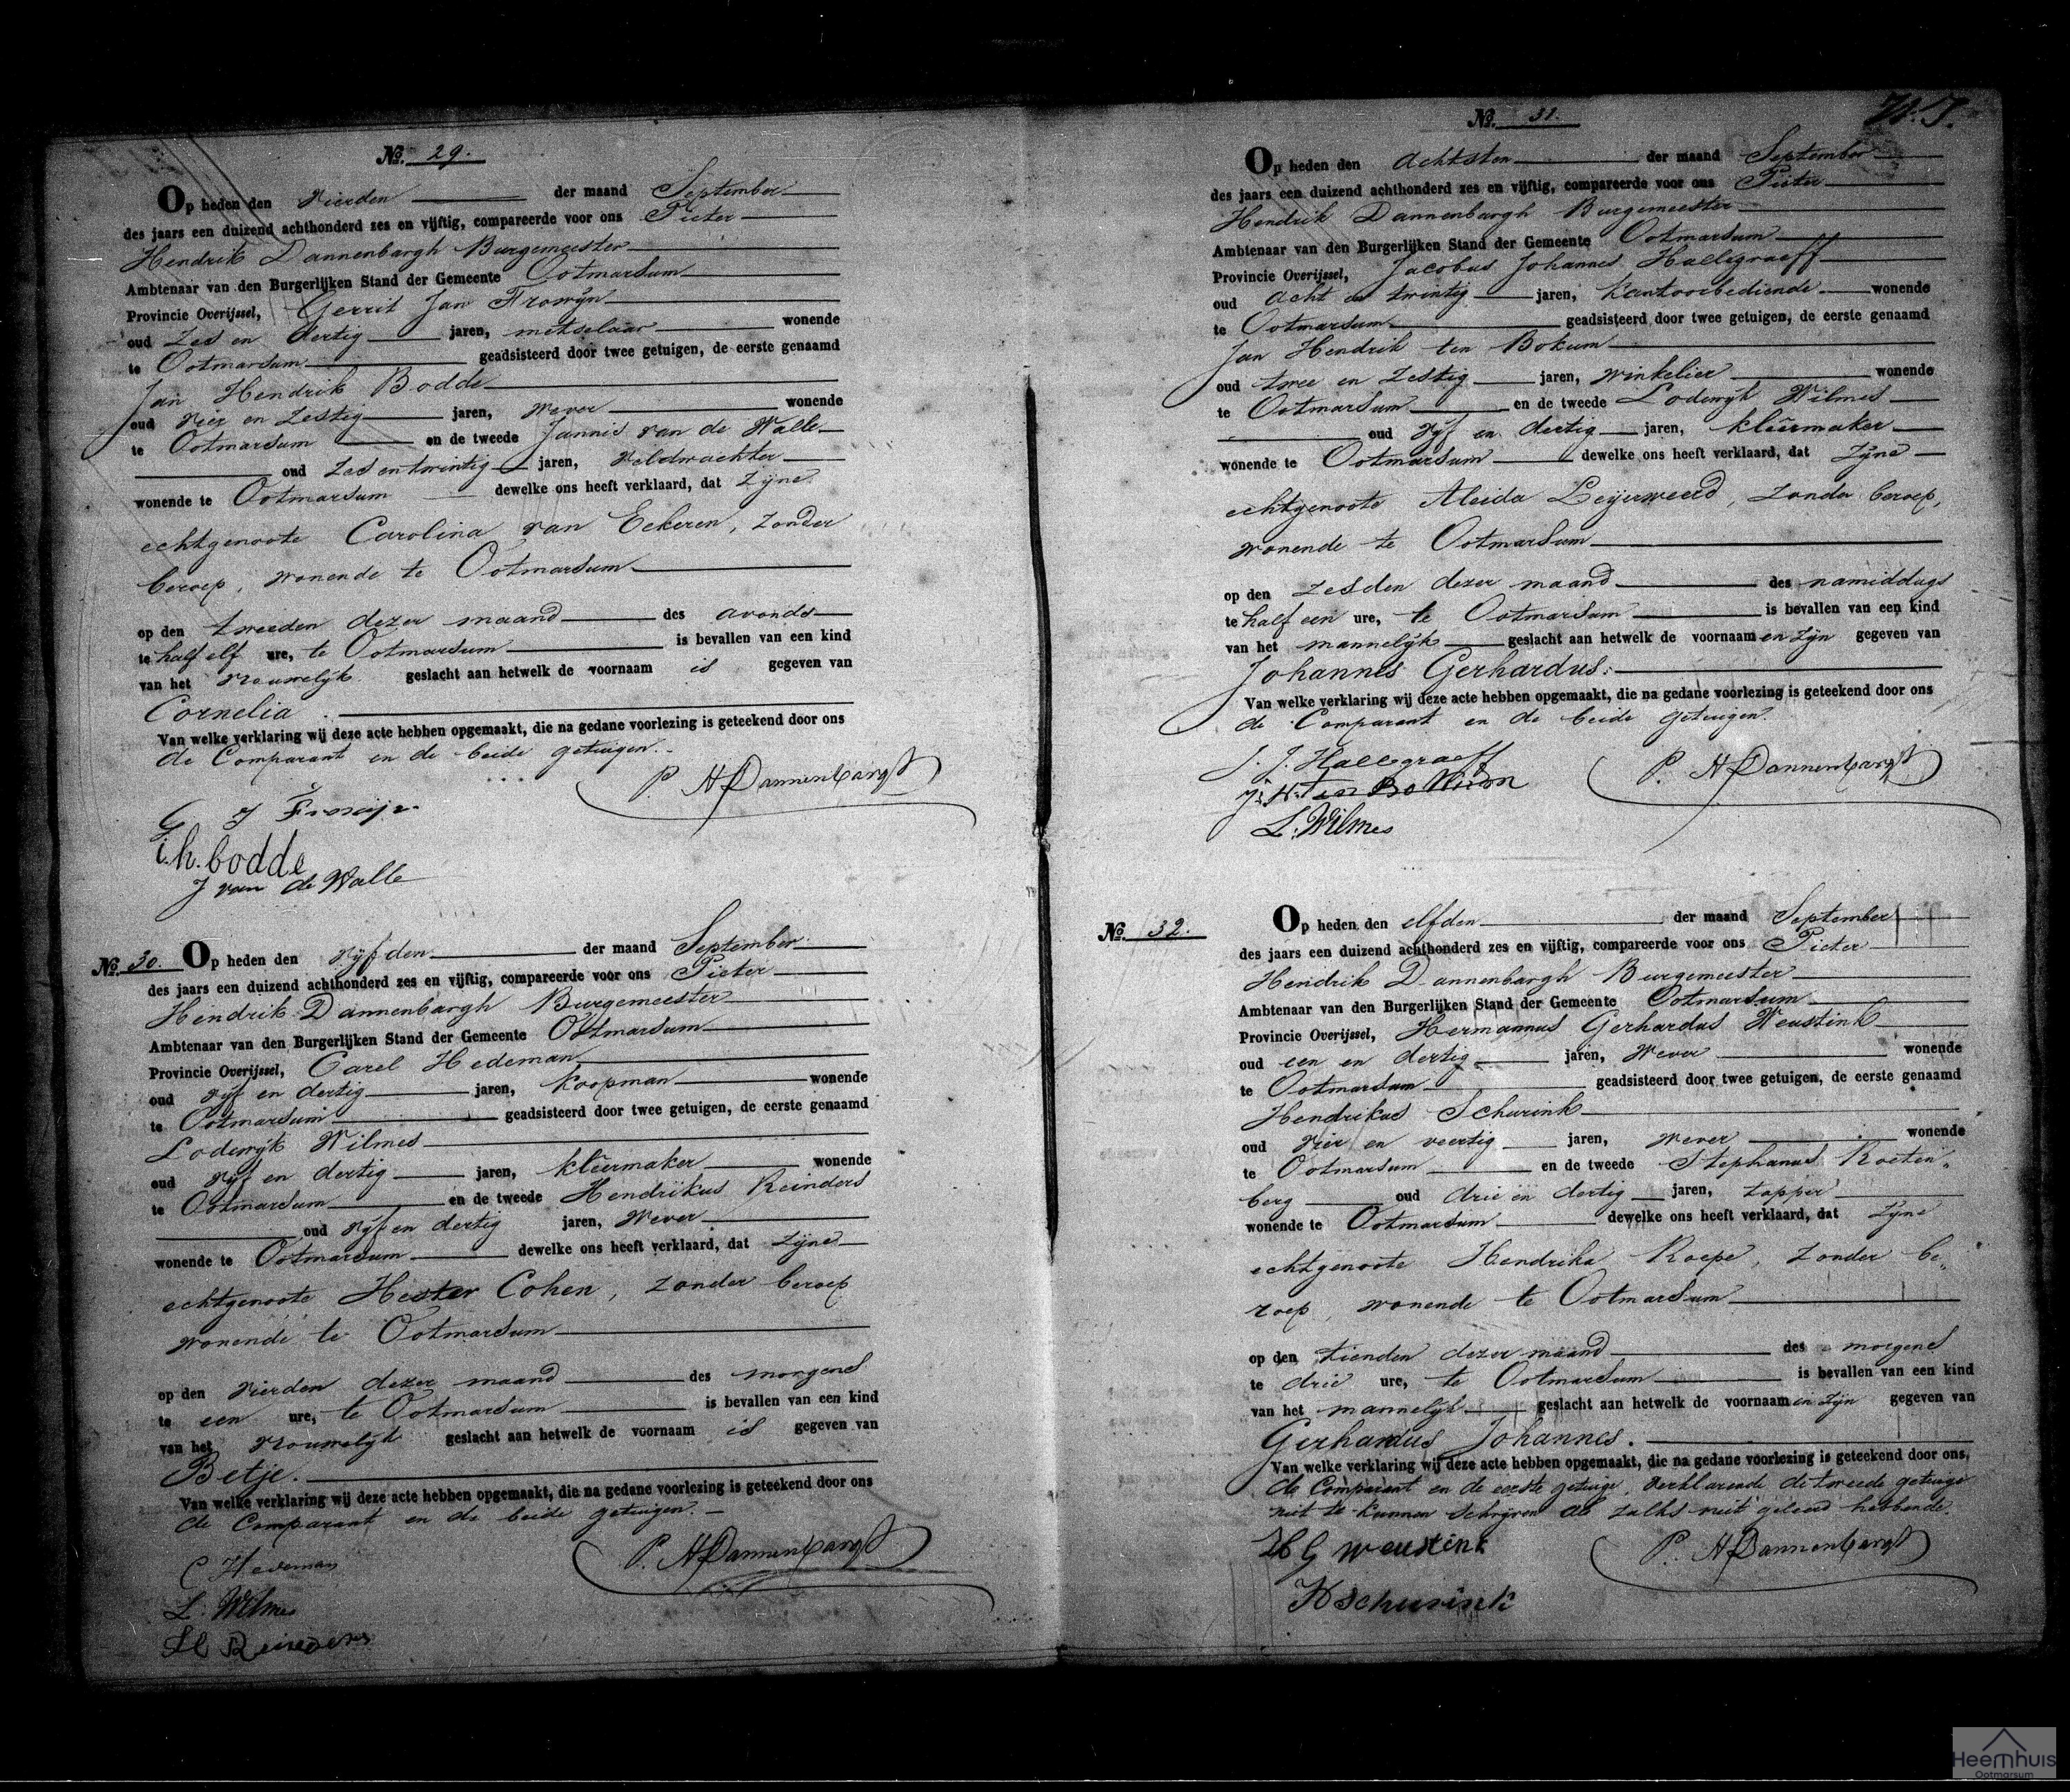 No. 29.
Op heden den vierden der maand September
des jaars een duizend achthonderd zes en vijftig, compareerde voor ons Pieter
Hendrik Dannenbargh Burgemeester
Ambtenaar van den Burgerlijken Stand der Gemeente Ootmarsum
Provincie Overijssel, Gerrit Jan Frowijn
oud zes en dertig jaren, metselaar wonende
te Ootmarsum geadsisteerd door twee getuigen, de eerste genaamd
Jan Hendrik Bodde
oud vier en zestig jaren, wever wonende
te Ootmarsum en de tweede Jannis van de Walle
oud zes en twintig jaren, veldwachter
wonende te Ootmarsum dewelke ons heeft verklaard, dat zijne
echtgenoote Carolina van Eckeren, zonder
beroep, wonende te Ootmarsum
op den tweeden dezer maand des avonds
te half elf ure, te Ootmarsum is bevallen van een kind
van het vrouwelijk geslacht aan hetwelk de voornaam is gegeven van
Cornelia.
Van welke verklaring wij deze acte hebben opgemaakt, die na gedane voorlezing is geteekend door ons
de Comparant en de beide getuigen.
P. H Dannenbargh
G J
i.h. bodde
J van de Walle
No. 30. Op heden den vijfden der maand September
des jaars een duizend achthonderd zes en vijftig, compareerde voor ons Pieter
Hendrik Dannenbargh Burgemeester
Ambtenaar van den Burgerlijken Stand der Gemeente Ootmarsum
Provincie Overijssel, Carel Hedeman
oud vijf en dertig jaren, koopman wonende
te Ootmarsum geadsisteerd door twee getuigen, de eerste genaamd
Lodewijk Wilmes
oud vijf en dertig jaren, kleermaker wonende
te Ootmarsum en de tweede Hendrikus Reinders
oud vijf en dertig jaren, wever
wonende te Ootmarsum dewelke ons heeft verklaard, dat zijne
echtgenoote Hester Cohen, zonder beroep
wonende te Ootmarsum
op den vierden dezer maand des morgens
te een ure, te Ootmarsum is bevallen van een kind
van het vrouwelijk geslacht aan hetwelk de voornaam is gegeven van
Betje.
Van welke verklaring wij deze acte hebben opgemaakt, die na gedane voorlezing is geteekend door ons
de Comparant en de beide getuigen.
P. H Dannenbargh
C Hedeman
L. Wilmes
H Reinders
No. 31.
Op heden den achtsten der maand September
des jaars een duizend achthonderd zes en vijftig, compareerde voor ons Pieter
Hendrik Dannenbargh Burgemeester
Ambtenaar van den Burgerlijken Stand der Gemeente Ootmarsum
Provincie Overijssel, Jacobus Johannes Hallegraeff
oud acht en twintig jaren, kantoorbediende wonende
te Ootmarsum geadsisteerd door twee getuigen, de eerste genaamd
Jan Hendrik ten Bokum
oud twee en zestig jaren, winkelier wonende
te Ootmarsum en de tweede Lodewijk Wilmes
oud vijf en dertig jaren, kleermaker
wonende te Ootmarsum dewelke ons heeft verklaard, dat zijne
echtgenoote Aleida Leijerweerd, zonder beroep,
wonende te Ootmarsum
op den zesden dezer maand des namiddags
te half een ure, te Ootmarsum is bevallen van een kind
van het mannelijk geslacht aan hetwelk de voornaamen zijn gegeven van
Johannes Gerhardus.
Van welke verklaring wij deze acte hebben opgemaakt, die na gedane voorlezing is geteekend door ons
de Comparant en de beide getuigen.
J. J. Hallegraeff
P. H Dannenbargh
L. Wilmes
No. 32. Op heden den elfden der maand September
des jaars een duizend achthonderd zes en vijftig, compareerde voor ons Pieter
Hendrik Dannenbargh Burgemeester
Ambtenaar van den Burgerlijken Stand der Gemeente Ootmarsum
Provincie Overijssel, Hermannus Gerhardus Weustink
oud een en dertig jaren, wever wonende
te Ootmarsum geadsisteerd door twee getuigen, de eerste genaamd
Hendrikus Schurink
oud vier en veertig jaren, wever wonende
te Ootmarsum en de tweede Stephanus Roeten„
berg oud drie en dertig jaren, tapper
wonende te Ootmarsum dewelke ons heeft verklaard, dat zijne
echtgenoote Hendrika Roepe, zonder be„
roep, wonende te Ootmarsum
op den tienden dezer maand des morgens
te drie ure, te Ootmarsum is bevallen van een kind
van het mannelijk geslacht aan hetwelk de voornaamen zijn gegeven van
Gerhardus Johannes.
Van welke verklaring wij deze acte hebben opgemaakt, die na gedane voorlezing is geteekend door ons,
de Comparant en de eerste getuige, verklarende de tweede getuige
niet te kunnen schrijven als zulks niet geleerd hebbende.
H G Weustink
P. H Dannenbargh
H Schurink
Heemhuis
Ootmarsum